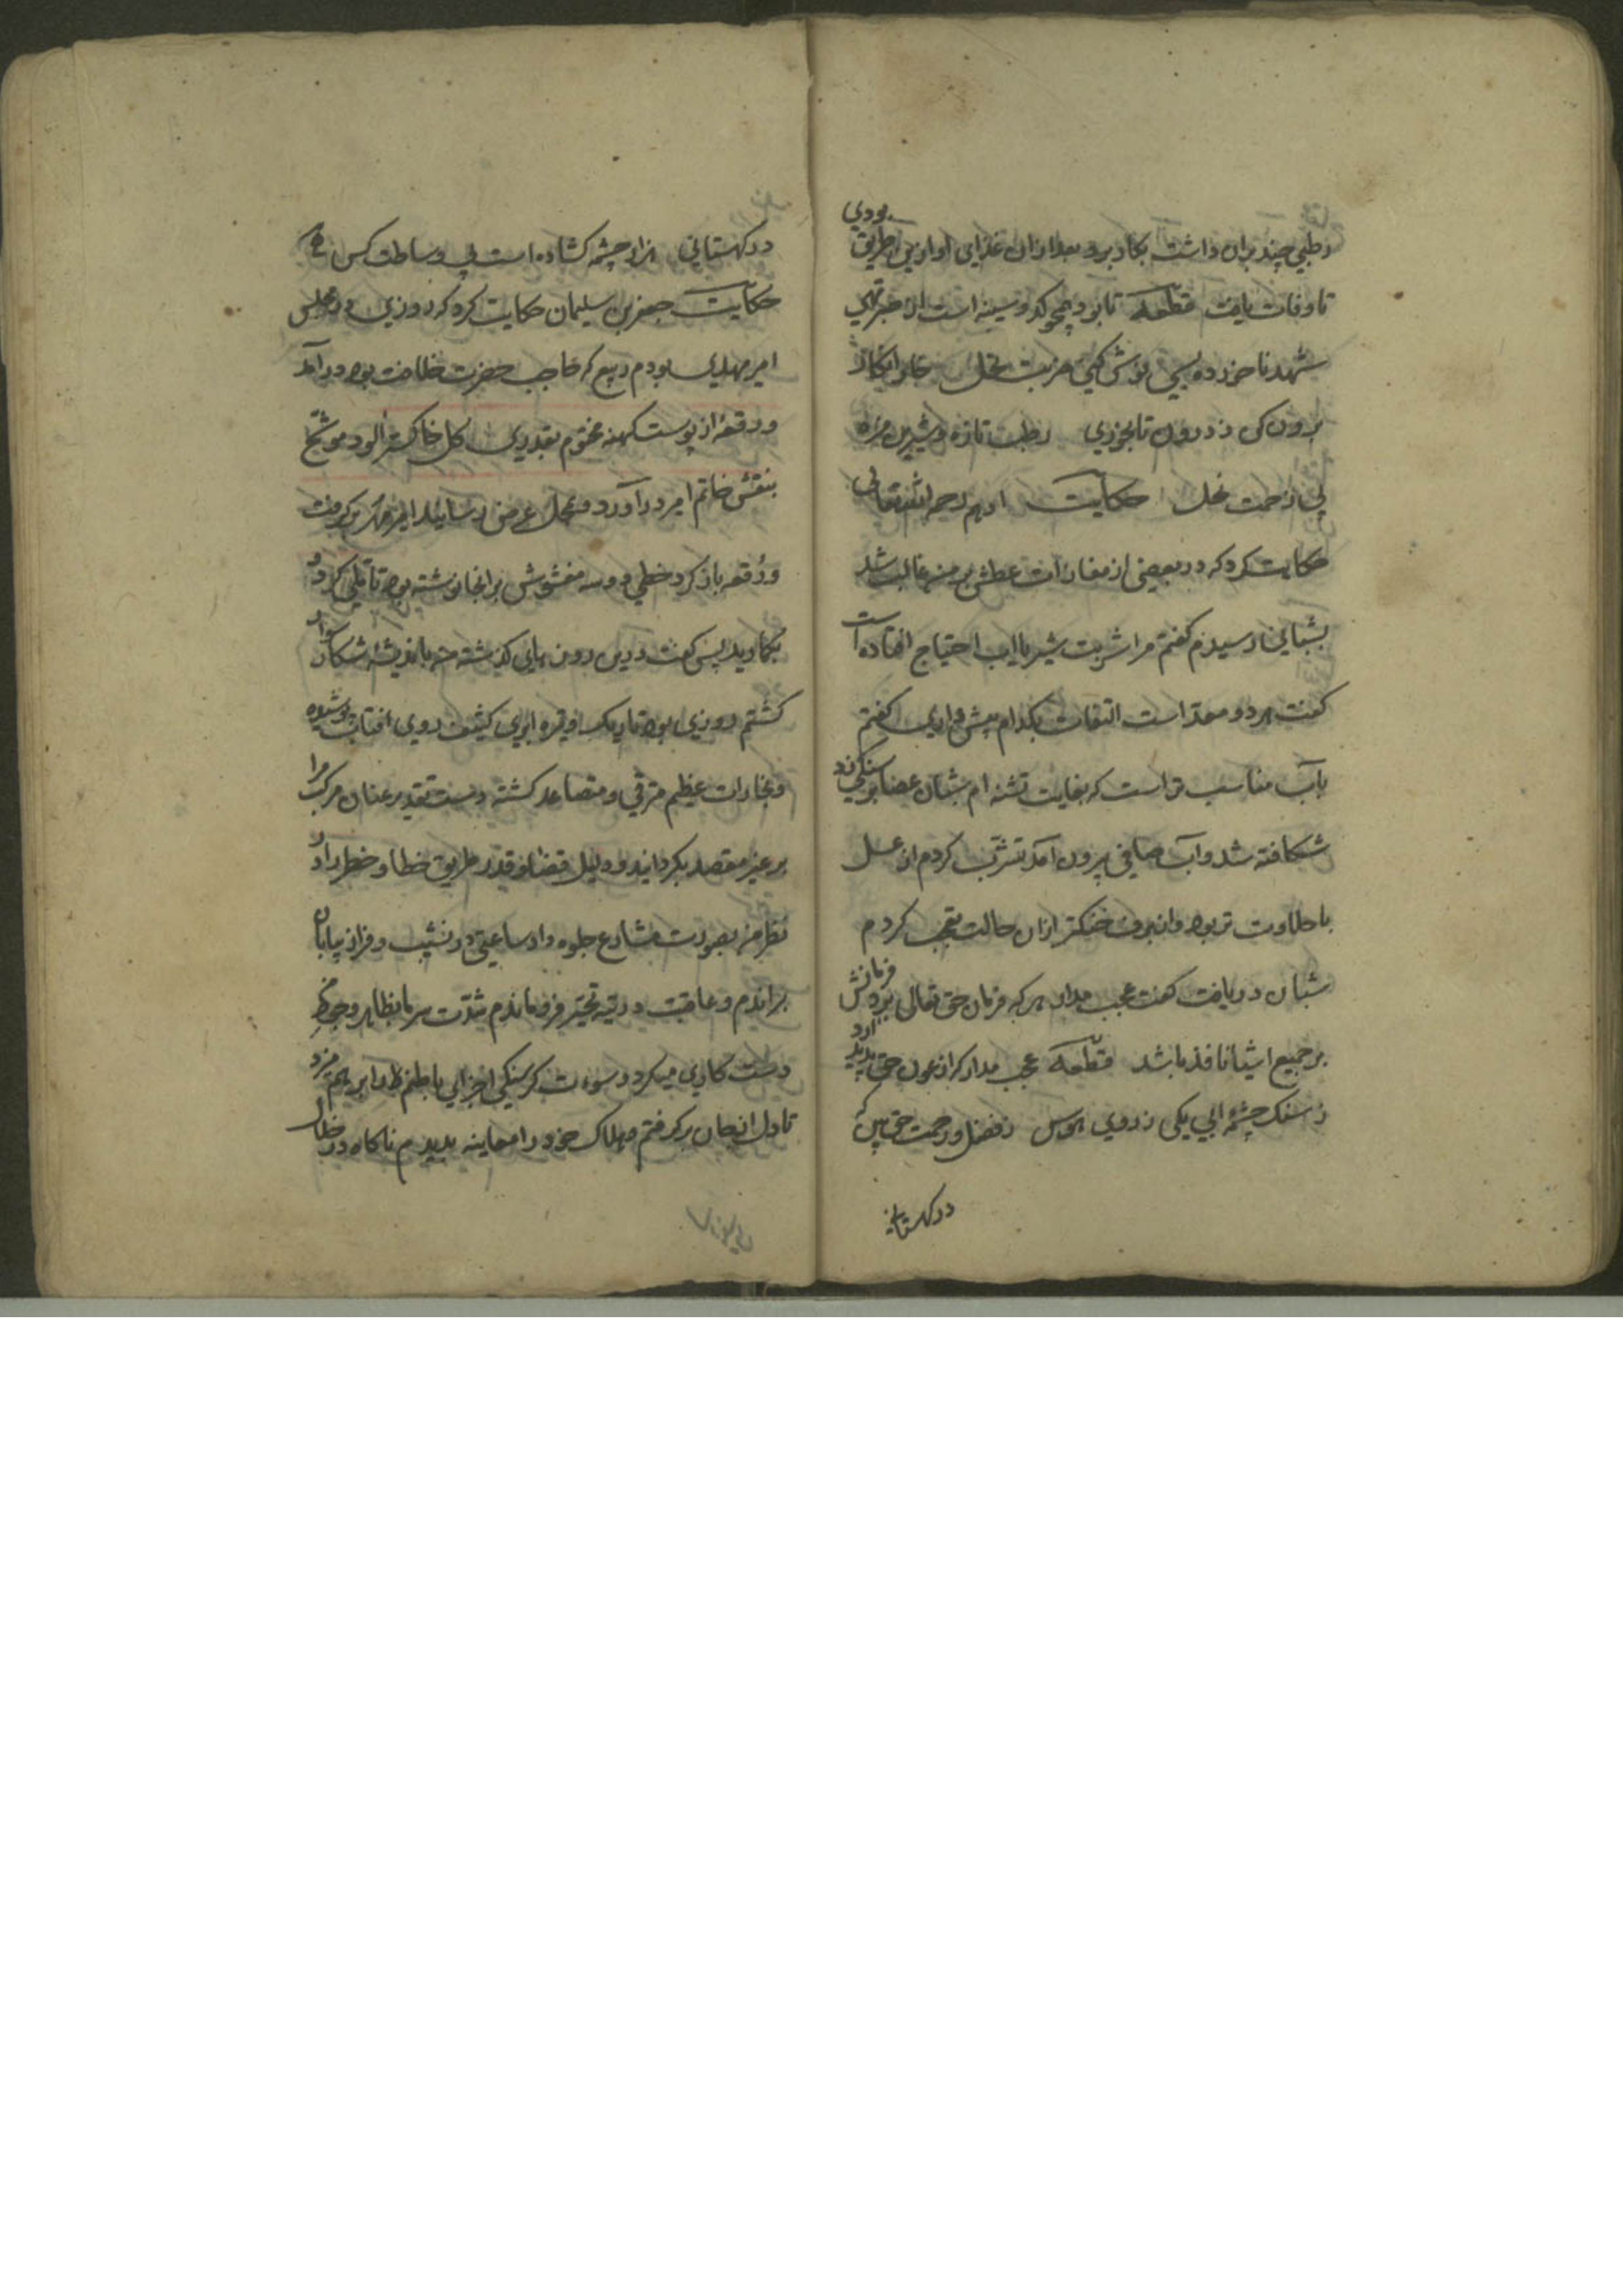 رطبی چند بران داشت بکار برد و بعد ازان غذای او ازین طریق بودی
تا وفات یافت قطعه تا بود همچو کدو سینه است از خبر تهی
شهد ناخورده پس نوش کهی ضربت نحل خار انکار
برون کن ز درون تا بخوری رطب تازه و شیرین مزه
بی زحمت نخل حکایت ادهم رحمه الله تعالی
حکایت کرد که در بعضی از مفازات عطش بر من غالب شد
بشبانی رسیدم کفتم مرا شربت شیر یا آب احتیاج افتاده است
کفت هر دو معد است التفات بکدام بیش داری کفتم
بآب مناسب تر است که بغایت تشنه ام شبان عصا بر سنکی زد
شکافته شد و آب صافی بیرون آمد تشرب کردم از عسل
با حلاوت تر بود و از برف خنکتر ازان حالت تعجب کردم
شبان دریافت کفت عجب مدار هر که فرمان حق تعالی برد فرمانش
بر جمیع اشیا نافذ باشد قطعه عجب مدار کر از عون حق پدید آرد
ز سنک چشمه ابی یکی ز روی هوس ز فضل و رحمت حق بین که
در کهستانی
در کهستانی هزار چشمه کشاده است بی وساطت کس
حکایت جعفر بن سلیمان حکایت کرد که روزی در مجلس
امیر مهدی بودم ربیع که حاجب حضرت خلافت بود در آمد
و رقعه از پوست کهنه مختوم بقدری کل خاکستر آلود موشح
بنقش خاتم امیر در آورد و بمحل عرض رسانید امیر مهر بر کرفت
و رقعه باز کرد خطی دو سه مغشوش بر انجا نوشته بود تاملی کرد و
بکماوید پس کفت درین روزهای کذشته من باندیشه شکار سوار
کشتم روزی بود تاریک و تیره ابری کثیف روی افتاب پوشیده
و بخارات عظیم مترقی و متصاعد کشته دست تقدیر عنان مرکب مرا
بر غیر مقصد بکردانید و دلیل قضا و قدر طریق خطا و خطر را در
نظر من بصورت مشارع جلوه داد ساعتی در نشیب و فراز بیابان
براندم و عاقبت در تیه تحیر فرو ماندم شدت سرما بظاهر وجودم
دست کاری میکرد و سورت کرسنکی اجزای باطنم را بر هم میزد
تا دل از جان بر کرفتم و هلاک خود را معاینه بدیدم ناکاه در خلال